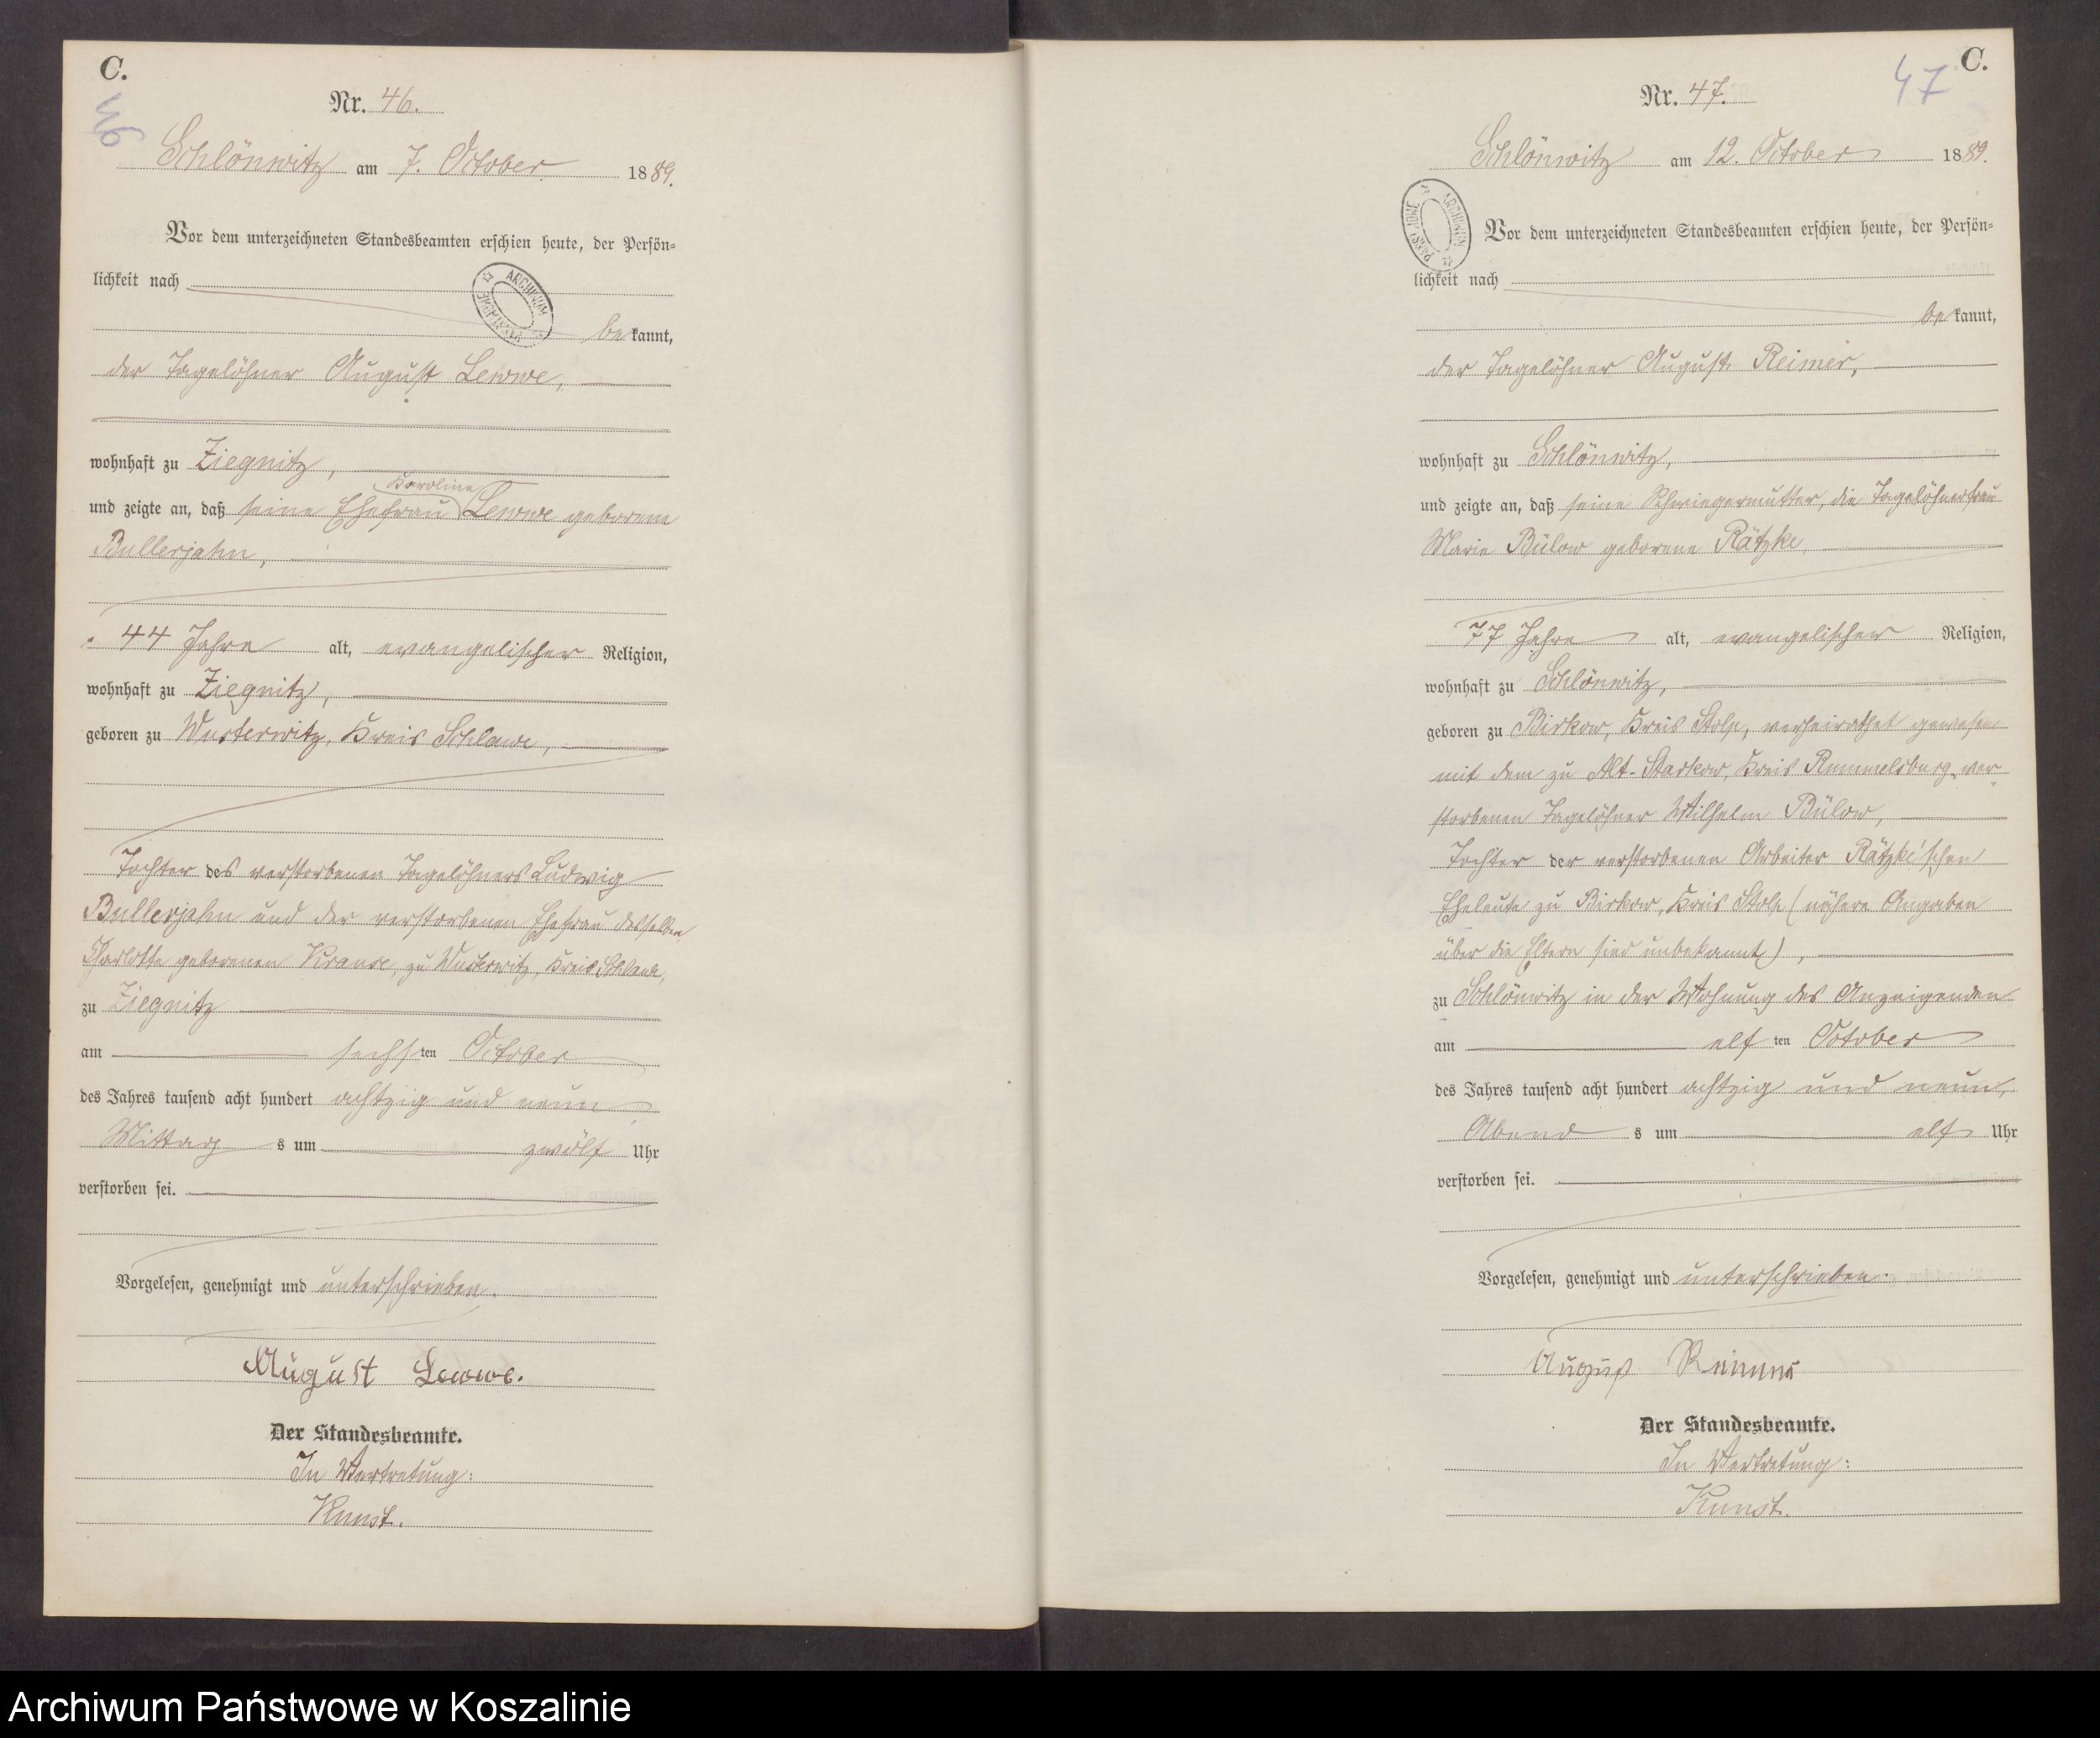 C.
46
Nr. 46.
Schlönwitz am 7. October 1889.
Vor dem unterzeichneten Standesbeamten erschien heute, der Persön=
lichkeit nach
bekannt,
der Tagelöhner August Lewwe,
wohnhaft zu Ziegnitz,
Karoline
und zeigte an, daß seine Ehefrau Lewwe geborene
Bullerjahn,
44 Jahre alt, evangelischer Religion,
wohnhaft zu Ziegnitz,
geboren zu Wusterwitz, Kreis Schlawe,
Tochter des verstorbenen Tagelöhners Ludwig
Bullerjahn und der verstorbenen Ehefrau desselben
Charlotte geborenen Krause, zu Wusterwitz, Kreis Schlawe,
zu Ziegnitz
am sechsten October
des Jahres tausend acht hundert achtzig und neun
Mittags um zwölf Uhr
verstorben sei.
Vorgelesen, genehmigt und unterschrieben.
August Lewwe.
Der Standesbeamte.
In Vertretung:
Kunst.
C.
47
Nr. 47.
Schlönwitz am 12. October 1889.
Vor dem unterzeichneten Standesbeamten erschien heute, der Persön=
lichkeit nach
bekannt,
der Tagelöhner August Reimer,
wohnhaft zu Schlönwitz,
und zeigte an, daß seine Schwiegermutter, die Tagelöhnerfrau
Marie Bülow geborene Rätzke,
77 Jahre alt, evangelischer Religion,
wohnhaft zu Schlönwitz,
geboren zu Birkow, Kreis Stolp, verheirathet gewesen
mit dem zu Alt-Starkow, Kreis Rummelsburg, ver-
storbenen Tagelöhner Wilhelm Bülow,
Tochter der verstorbenen Arbeiter Rätzke'schen
Eheleute zu Birkow, Kreis Stolp (nähere Angaben
über die Eltern sind unbekannt),
zu Schlönwitz in der Wohnung des Anzeigenden
am elften October
des Jahres tausend acht hundert achtzig und neun,
Abends um elf Uhr
verstorben sei.
Vorgelesen, genehmigt und unterschrieben.
August Reimer
Der Standesbeamte.
In Vertretung:
Kunst.
Archiwum Państwowe w Koszalinie